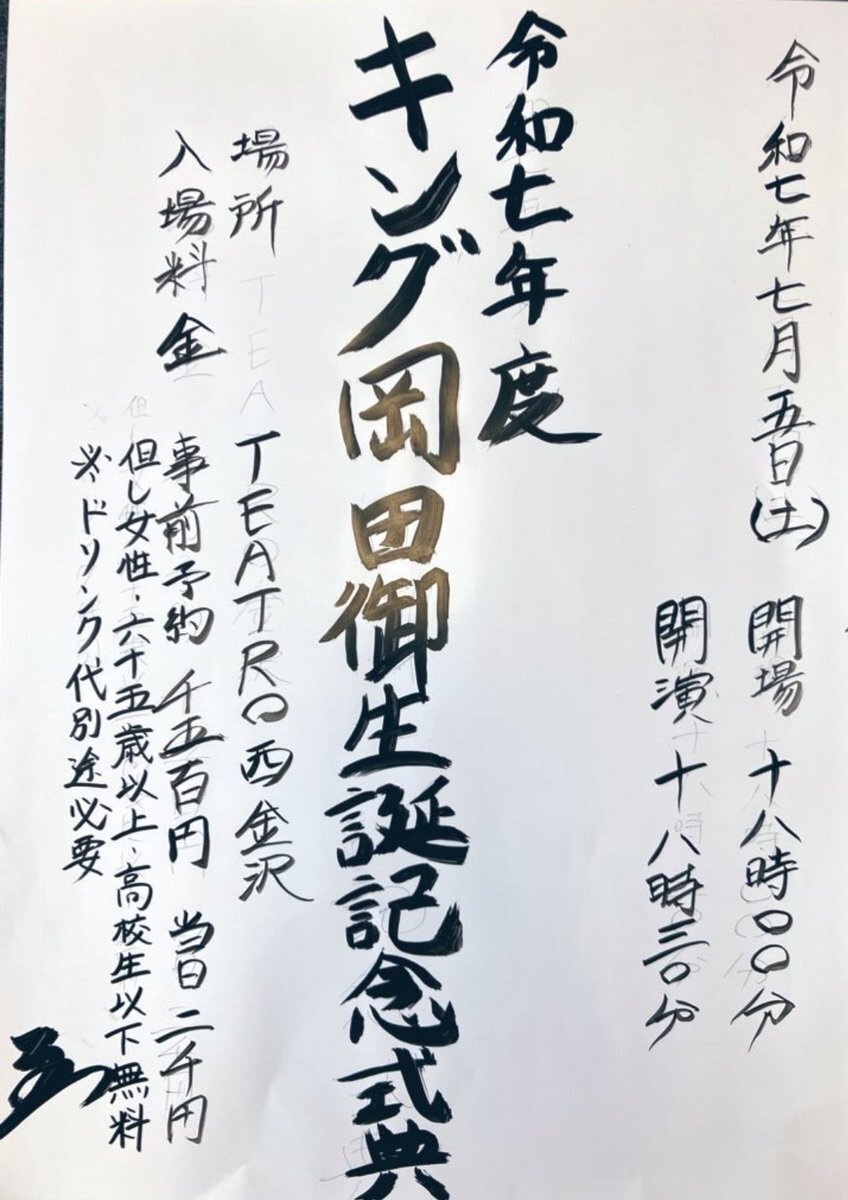 令和七年七月五日(土) 開場 十八時〇〇分
開演 十八時三〇分
令和七年度
キング岡田御生誕記念式典
場所 TEATRO西金沢
入場料金 事前予約 千五百円 当日 二千円
但し女性・六十五歳以上・高校生以下無料
※ドリンク代別途必要